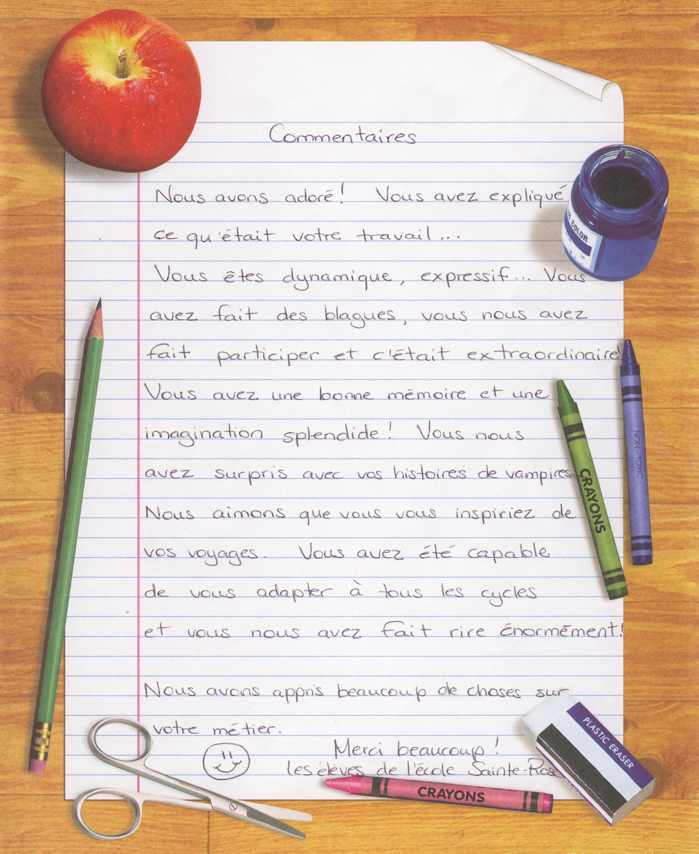 Commentaires
Nous avons adoré! Vous avez expliqué
ce qu'était votre travail...
Vous êtes dynamique, expressif... Vous
avez fait des blagues, vous nous avez
fait participer et c'était extraordinaire!
Vous avez une bonne mémoire et une
imagination splendide! Vous nous
avez surpris avec vos histoires de vampires
Nous aimons que vous vous inspiriez de
vos voyages. Vous avez été capable
de vous adapter à tous les cycles
et vous nous avez fait rire énormément!
Nous avons appris beaucoup de choses sur
votre métier.
Merci beaucoup!
les élèves de l'école Sainte-Rose
COLOR
CRAYONS
PLASTIC ERASER
CRAYONS